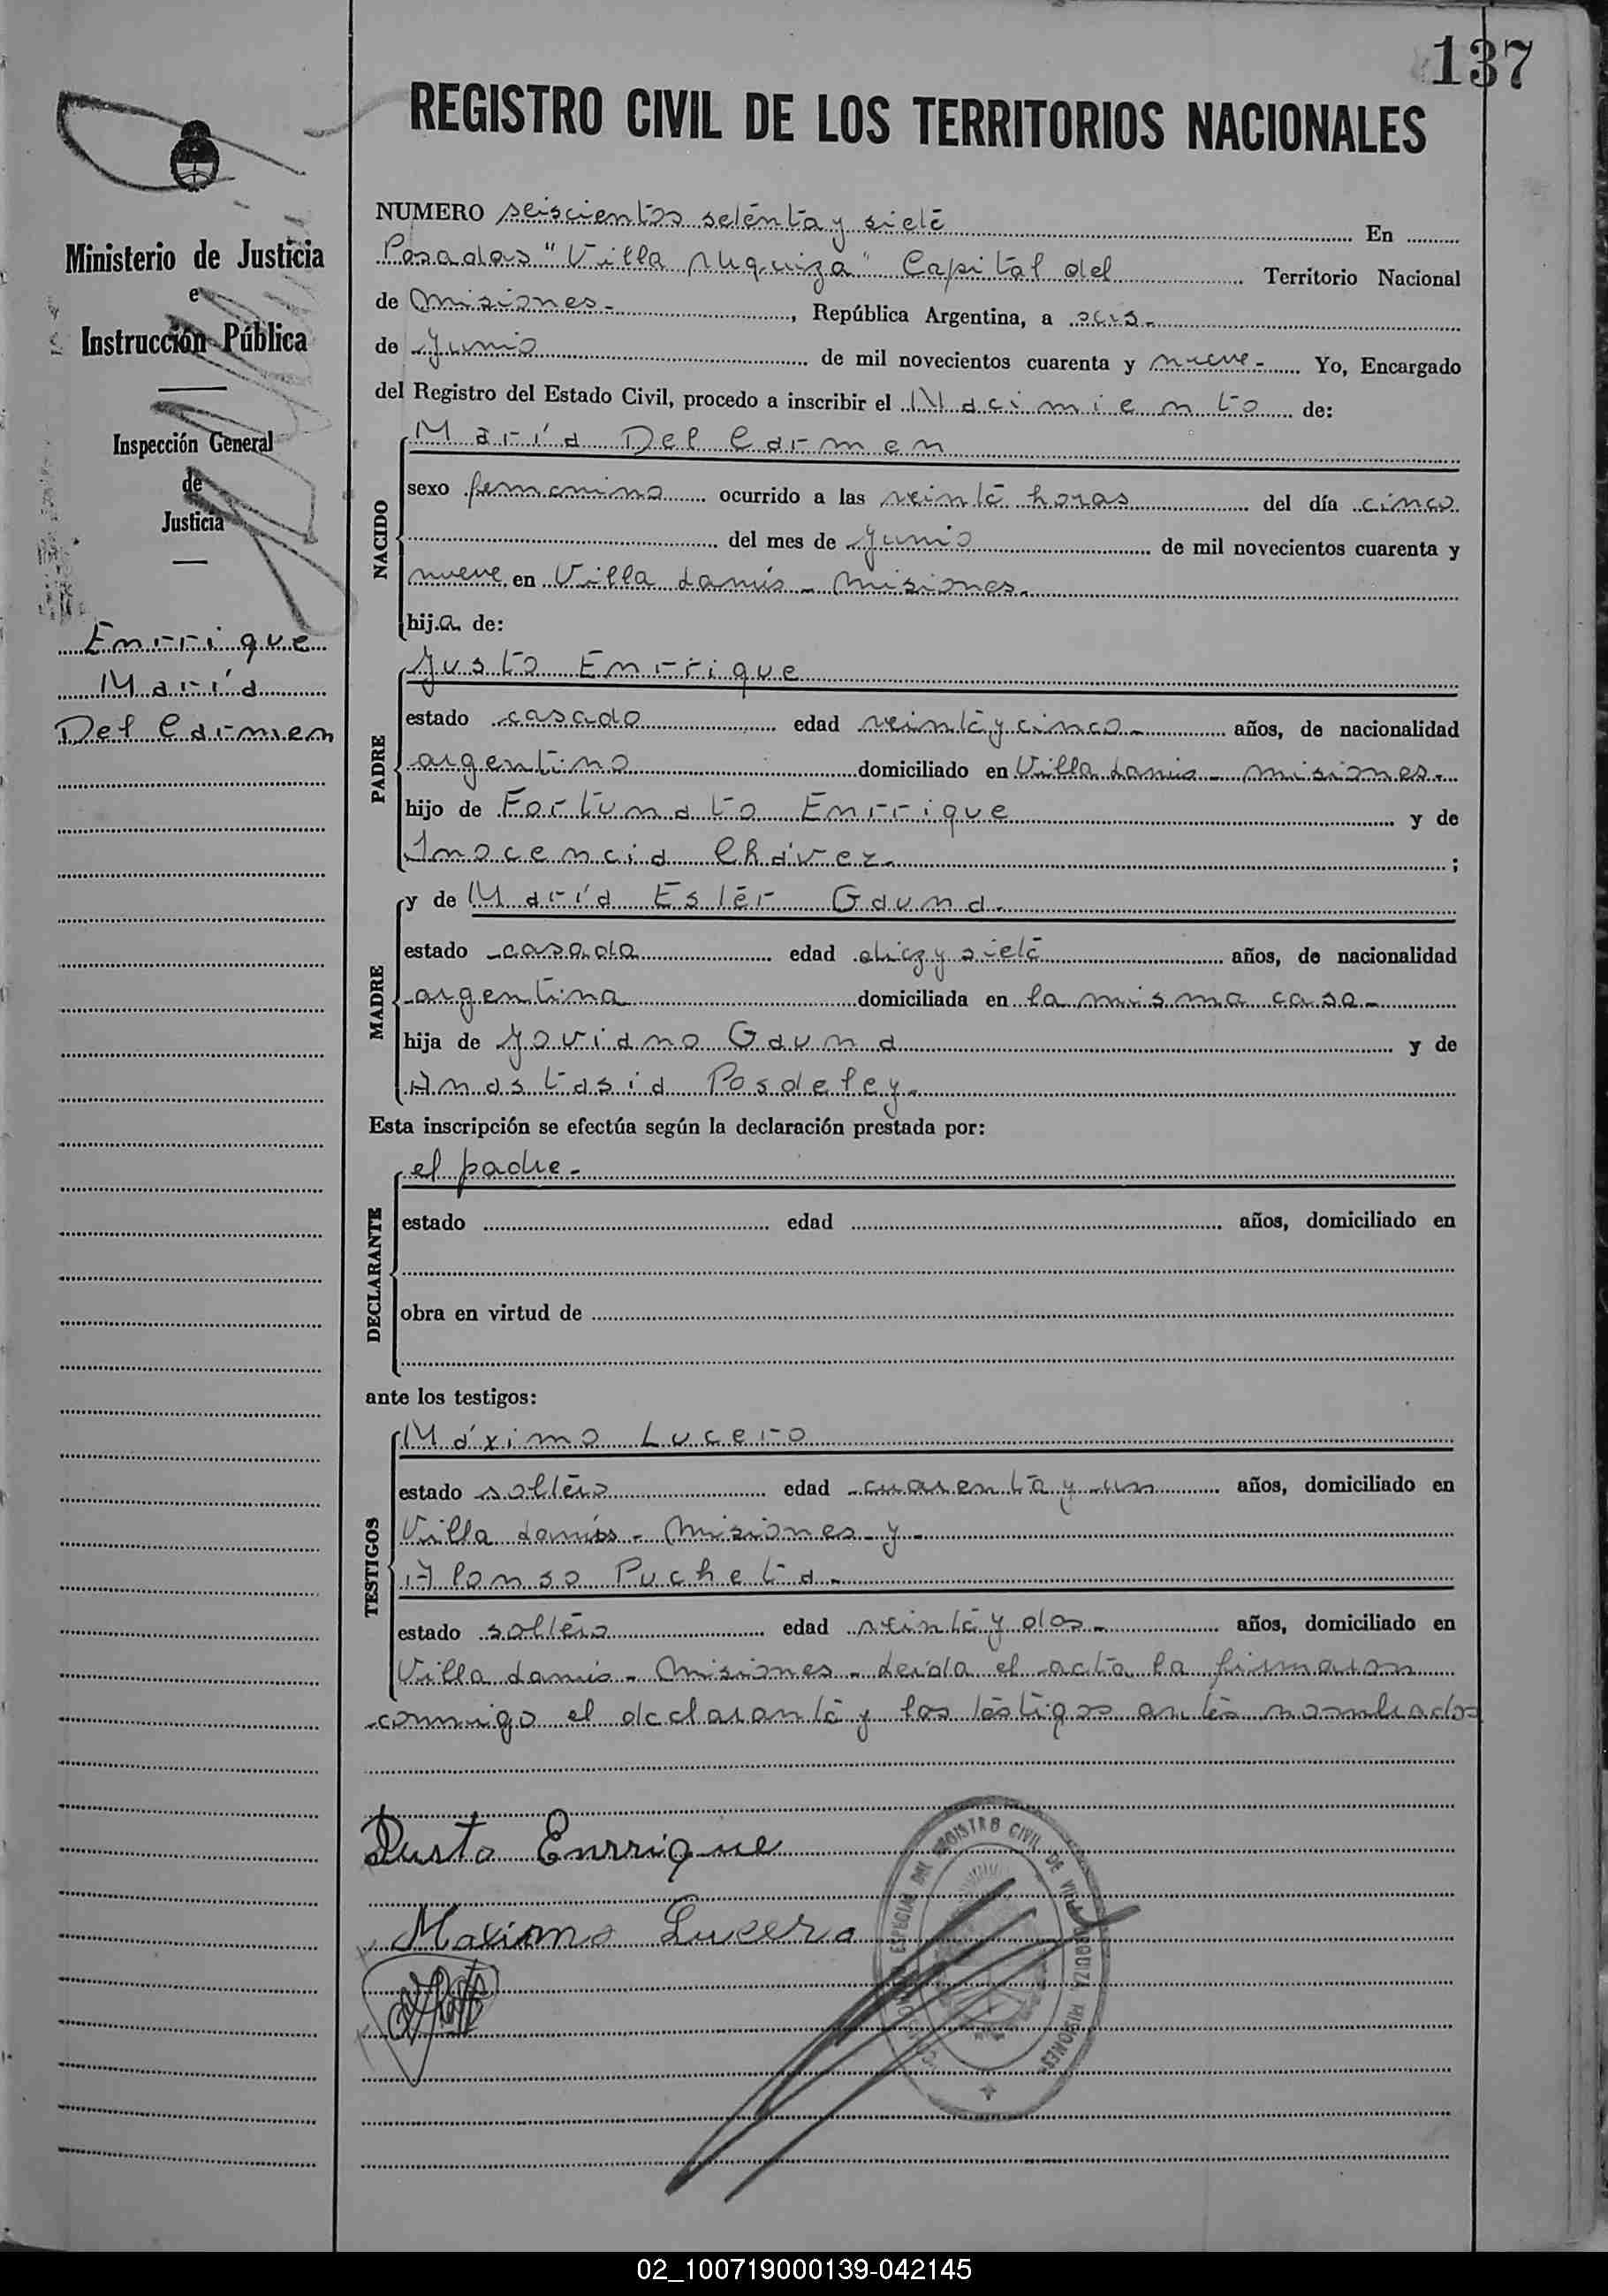 137
REGISTRO CIVIL DE LOS TERRITORIOS NACIONALES
Ministerio de Justicia
e
Instrucción Pública
Inspección General
de
Justicia
Enrrique
María
Del Carmen
NUMERO seiscientos setenta y siete En
Posadas "Villa Urquiza" Capital del Territorio Nacional
de Misiones.-, República Argentina, a seis.-
de Junio de mil novecientos cuarenta y nueve.- Yo, Encargado
del Registro del Estado Civil, procedo a inscribir el Nacimiento de:
María Del Carmen
NACIDO
sexo femenino ocurrido a las veinte horas del día cinco
del mes de Junio de mil novecientos cuarenta y
nueve en Villa Lanús - Misiones.
hija de:
Justo Enrrique
PADRE
estado casado edad veinte y cinco.- años, de nacionalidad
argentino domiciliado en Villa Lanús - Misiones.-
hijo de Fortunato Enrrique y de
Inocencia Chávez.- ;
MADRE
y de María Ester Gauna.
estado casada edad diez y siete años, de nacionalidad
argentina domiciliada en la misma casa.-
hija de Joviano Gauna y de
Anastasia Posdeley.
Esta inscripción se efectúa según la declaración prestada por:
DECLARANTE
el padre.-
estado edad años, domiciliado en
obra en virtud de
ante los testigos:
TESTIGOS
Máximo Lucero
estado soltero edad cuarenta y un años, domiciliado en
Villa Lanús - Misiones - y -
Alonso Pucheta.-
estado soltero edad veinte y dos.- años, domiciliado en
Villa Lanús - Misiones - Leída el acta la firmaron
conmigo el declarante y los testigos antes nombrados
Justo Enrrique
Maximo Lucero
ESPECIAL DEL REGISTRO CIVIL DE VILLA URQUIZA MISIONES
02_100719000139-042145